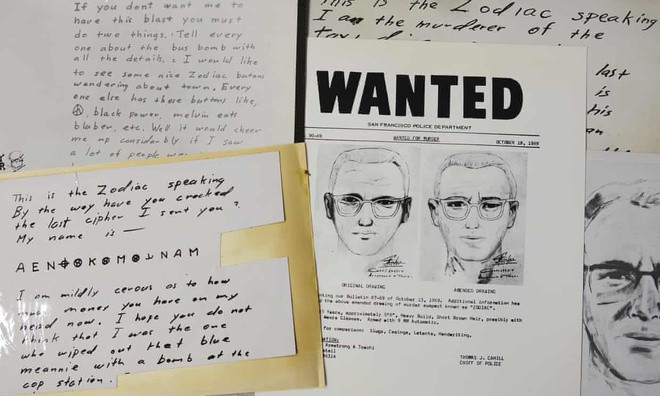 If you don't want me to
have this blast you must
do two things. Tell every
one about the bus bomb with
all the details. I would like
to see some nice Zodiac butons
wandering about town. Every
one else has these buttons like,
black power, melvin eats
blaber, etc. Well it would cheer
me up considerably if I saw
a lot of people
This is the Zodiac speaking
I am the murderer of the
last
is
his
WANTED
SAN FRANCISCO POLICE DEPARTMENT
WANTED FOR MURDER
OCTOBER 18, 1969
ORIGINAL DRAWING
AMENDED DRAWING
our Bulletin 87-69 of October 13, 1969. Additional information has
the above amended drawing of murder suspect known as "ZODIAC".
Years, approximately 5'8", Heavy Build, Short Brown Hair, possibly with
Glasses. Armed with 9 MM Automatic.
for comparison: Slugs, Casings, Latents, Handwriting.
Armstrong & Toschi
THOMAS J. CAHILL
CHIEF OF POLICE
This is the Zodiac speaking
By the way have you cracked
the last cipher I sent you?
My name is —
A E N ⊕ ⊗ K ⊗ M ⊗ ⅃ N A M
I am mildly cerous as to how
much money you have on my
head now. I hope you do not
think that I was the one
who wiped out that blue
meannie with a bomb at the
cop station.